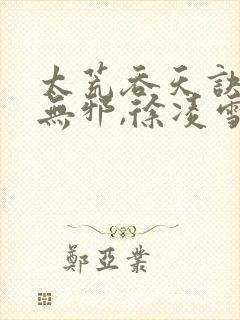 太荒吞天訣
無邪,徐凌雪
鄭亞業